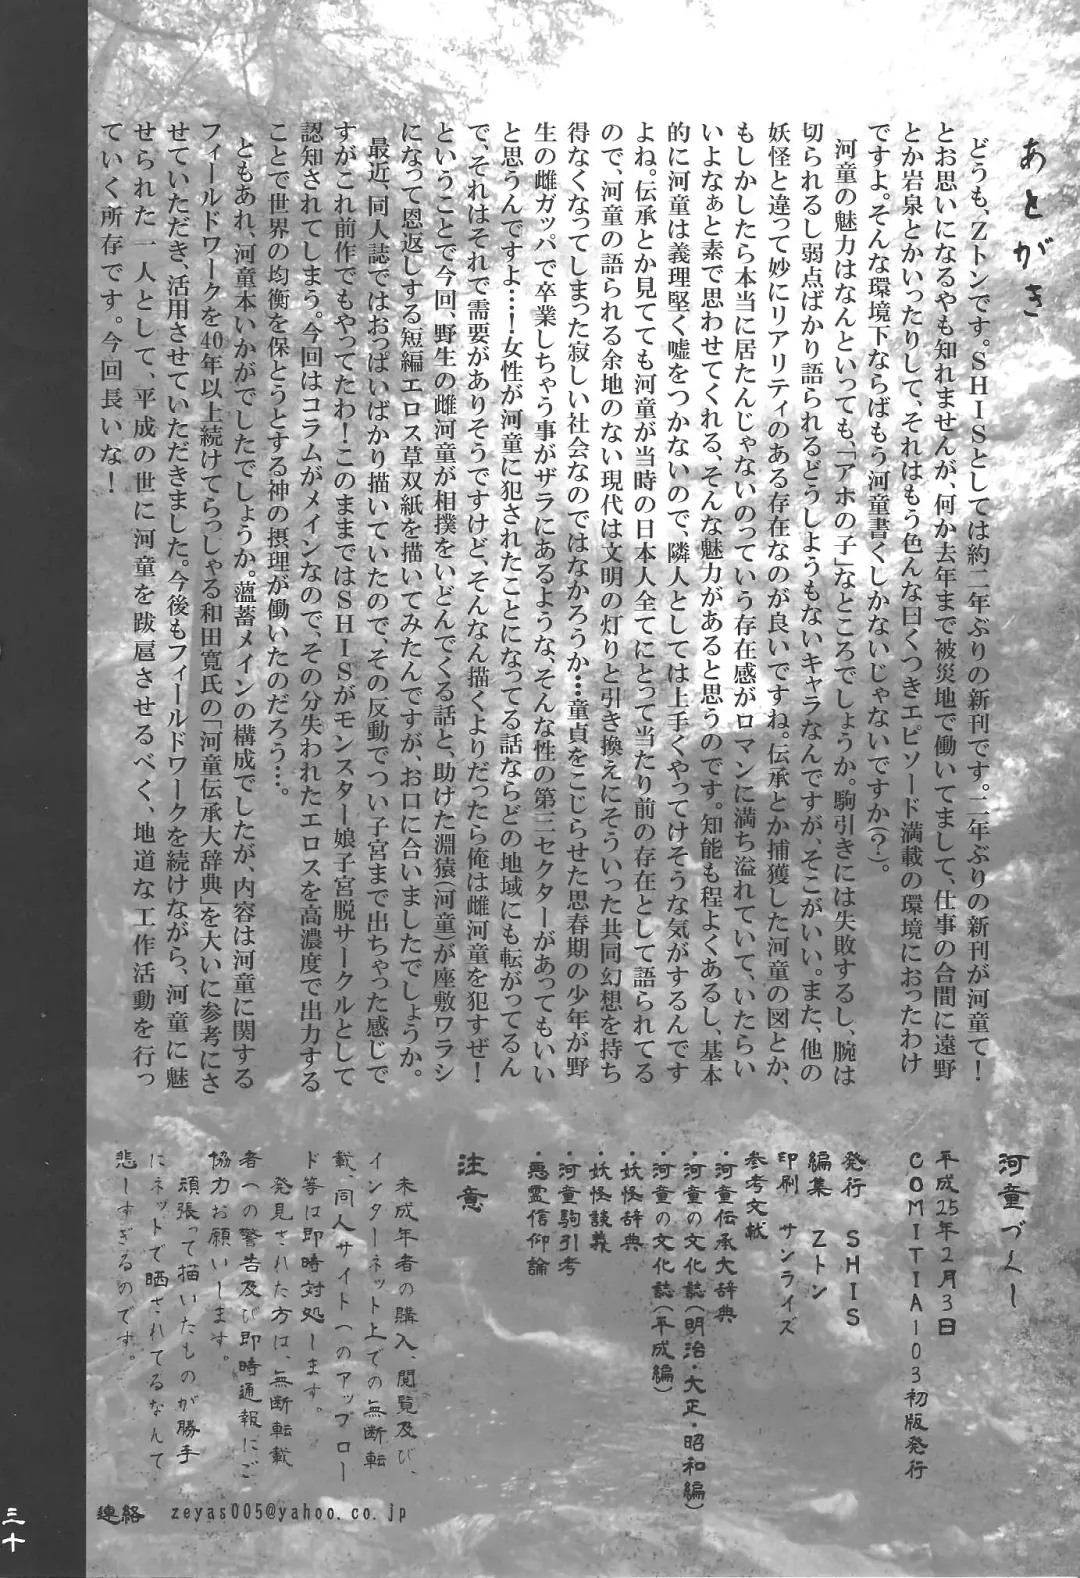 あとがき
どうも、Zトンです。SHISとしては約二年ぶりの新刊です。二年ぶりの新刊が河童て！
とお思いになるやも知れませんが、何か去年まで被災地で働いてまして、仕事の合間に遠野
とか岩泉とかいったりして、それはもう色んな曰くつきエピソード満載の環境におったわけ
ですよ。そんな環境下ならばもう河童書くしかないじゃないですか(？)。
河童の魅力はなんといっても、「アホの子」なところでしょうか。駒引きには失敗するし、腕は
切られるし弱点ばかり語られるどうしようもないキャラなんですが、そこがいい。また、他の
妖怪と違って妙にリアリティのある存在なのが良いですね。伝承とか捕獲した河童の図とか、
もしかしたら本当に居たんじゃないのっていう存在感がロマンに満ち溢れていて、いたらい
いよなぁと素で思わせてくれる、そんな魅力があると思うのです。知能も程よくあるし、基本
的に河童は義理堅く嘘をつかないので、隣人としては上手くやってけそうな気がするんです
よね。伝承とか見てても河童が当時の日本人全てにとって当たり前の存在として語られてる
ので、河童の語られる余地のない現代は文明の灯りと引き換えにそういった共同幻想を持ち
得なくなってしまった寂しい社会なのではなかろうか…童貞をこじらせた思春期の少年が野
生の雌ガッパで卒業しちゃう事がザラにあるような、そんな性の第三セクターがあってもいい
と思うんですよ…！女性が河童に犯されたことになってる話ならどの地域にも転がってるん
で、それはそれで需要がありそうですけど、そんなん描くよりだったら俺は雌河童を犯すぜ！
ということで今回、野生の雌河童が相撲をいどんでくる話と、助けた淵猿(河童)が座敷ワラシ
になって恩返しする短編エロス草双紙を描いてみたんですが、お口に合いましたでしょうか。
最近、同人誌ではおっぱいばかり描いていたので、その反動でつい子宮まで出ちゃった感じで
すがこれ前作でもやってたわ！このままではSHISがモンスター娘子宮脱サークルとして
認知されてしまう。今回はコラムがメインなので、その分失われたエロスを高濃度で出力する
ことで世界の均衡を保とうとする神の摂理が働いたのだろう…。
ともあれ、河童本いかがでしたでしょうか。薀蓄メインの構成でしたが、内容は河童に関する
フィールドワークを40年以上続けてらっしゃる和田寛氏の「河童伝承大辞典」を大いに参考にさ
せていただき、活用させていただきました。今後もフィールドワークを続けながら、河童に魅
せられた一人として、平成の世に河童を跋扈させるべく、地道な工作活動を行っ
ていく所存です。今回長いな！
河童づくし
平成25年2月3日
COMITIA103初版発行
発行　SHIS
編集　Zトン
印刷　サンライズ
参考文献
・河童伝承大辞典
・河童の文化誌(明治・大正・昭和編)
・河童の文化誌(平成編)
・妖怪辞典
・妖怪談義
・河童駒引考
・悪霊信仰論
注意
未成年者の購入、閲覧及び、
インターネット上での無断転
載、同人サイトへのアップロー
ド等は即時対処します。
発見された方は、無断転載
者への警告及び即時通報にご
協力お願いします。
頑張って描いたものが勝手
にネットで晒されてるなんて
悲しすぎるのです。
連絡　zeyas005@yahoo.co.jp
三十